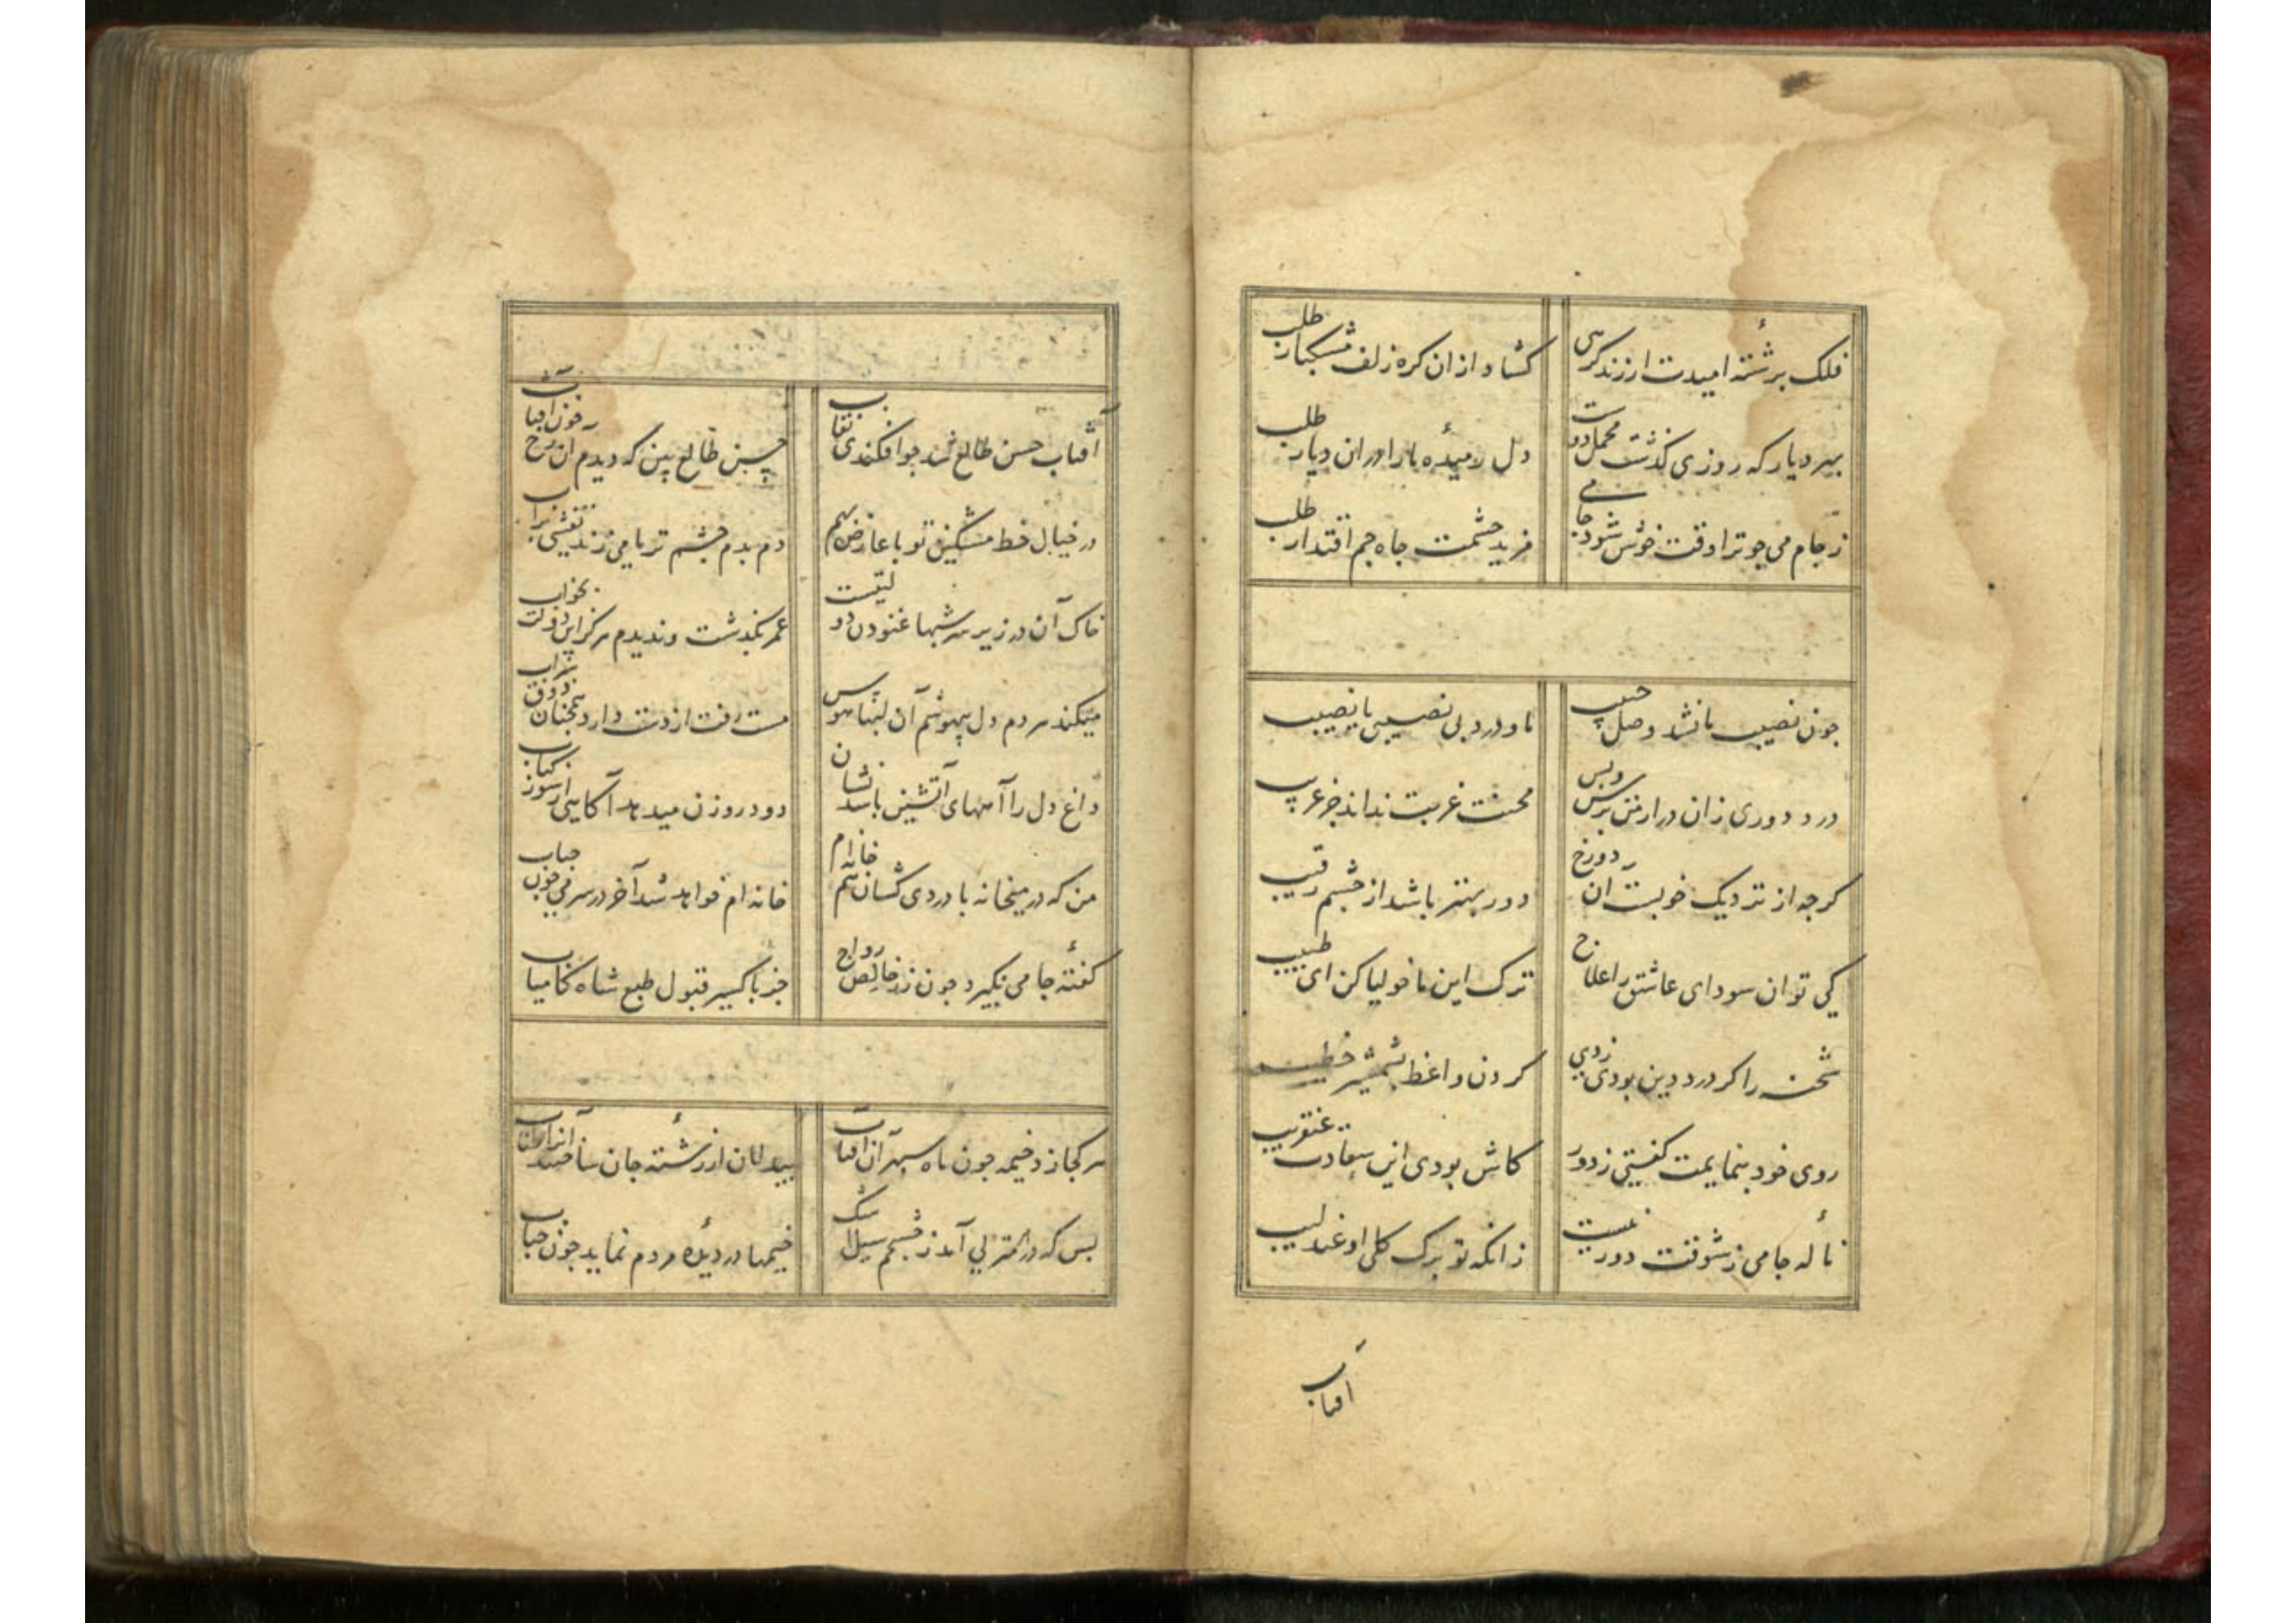 فلک برشتهٔ امیدت ار زند کرهی کشاد ازان کره زلف مشکبار طلب
بهر دیار که روزی کذشت محمل دوست دل رمیدهٔ ما را دران دیار طلب
ز جام می جو ترا وقت خوش شود جامی مزید حشمت جاه جم اقتدار طلب
جون نصیب ما نشد وصل حبیب ما و درد بی نصیبی یا نصیب
درد دوری زان در از من پرس و بس محنت غربت نداند جز غریب
کرجه از نزدیک خوبست آن رخ دور بهتر باشد از چشم رقیب
کی توان سودای عاشق را علاج ترک این ماخولیا کن ای طبیب
شحنه را کر درد دین بودی زدی کردن واعظ بشمشیر خطیب
روی خود بنمایمت کفتی ز دور کاش بودی این سعادت عنقریب
نالهٔ جامی ز شوقت دور نیست زانکه تو برک کلی او عندلیب
افتاب
آفتاب حسن طالع شد جو افکندی نقاب حسن طالع بین که دیدم آن رخ جون آفتاب
در خیال خط مشکین تو با عارض بهم دم بدم چشم تر ما می زند نقشی بر آب
خاک آن در زیر سر شبها غنودن دولتیست عمر بکذشت و ندیدم هرکز این دولت بخواب
میکند هر دم دل بیهوشم آن لبها هوس مست رفت از دست و دارد همچنان ذوق شراب
داغ دل را آههای آتشین باشد نشان دود روزن میدهد آکاهی از سوز کباب
من که در میخانه با دردی کشان هم خانه ام خانه ام خواهد شد آخر در سر می جون حباب
کفتهٔ جامی نکیرد جون زر خالص رواج جز باکسیر قبول طبع شاه کامیاب
هر کجا زد خیمه جون ماه سپهر آن آفتاب بیدلان از رشتهٔ جان ساختند آنرا طناب
بس که در هر منزلی آمد ز چشمم سیل اشک خیمها در دیدهٔ مردم نماید جون حباب